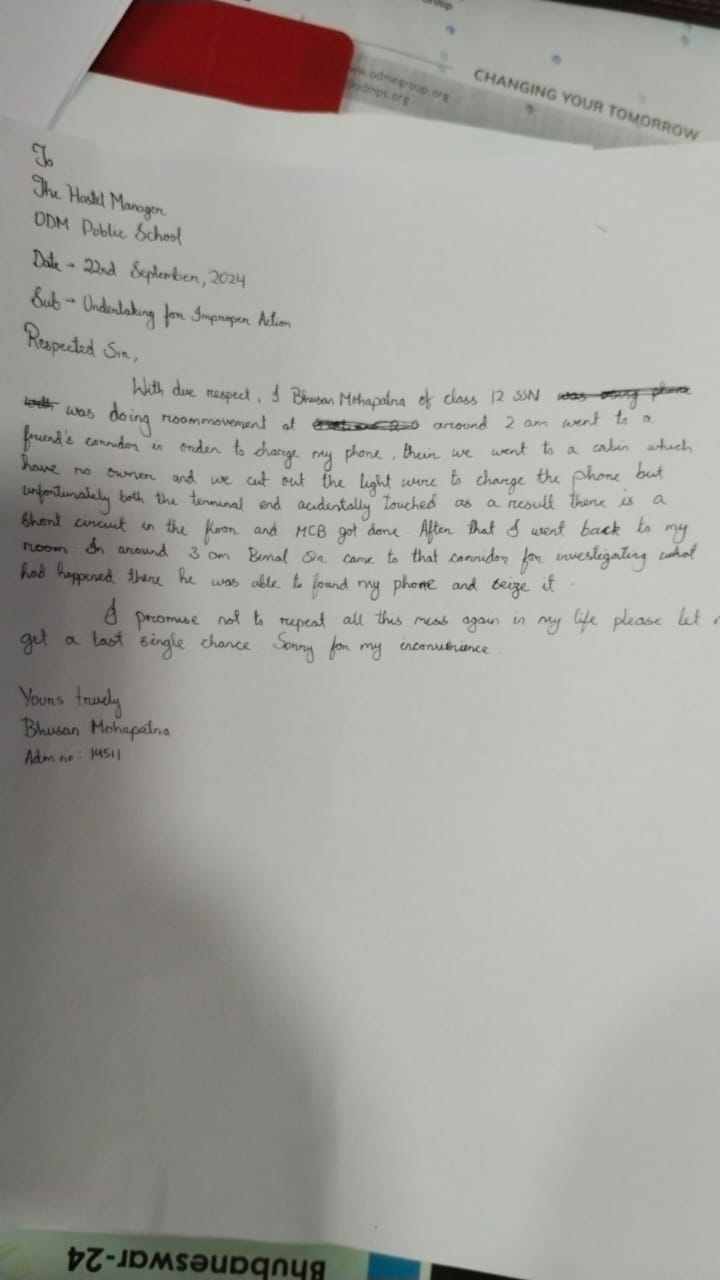 CHANGING YOUR TOMORROW
www.odmegroup.org
To
The Hostel Manager
ODM Public School
Date → 22nd September, 2024
Sub → Undertaking for Improper Action
Respected Sir,
With due respect, I Bhusan Mohapatra of class 12 SSN was using phone
with was doing roommovement at around 2 am went to a
friend's corridor in order to change my phone, then we went to a cabin which
have no owner and we cut out the light wire to change the phone but
unfortunately both the terminal end accidentally touched as a result there is a
short circuit in the floor and MCB got done. After that I went back to my
room. In around 3 am Bimal Sir came to that corridor for investigating what
had happened there he was able to found my phone and seize it.
I promise not to repeat all this mess again in my life please let
get a last single chance. Sorry for my inconvenience.
Yours truely
Bhusan Mohapatra
Adm no: 14511
Bhubaneswar-24